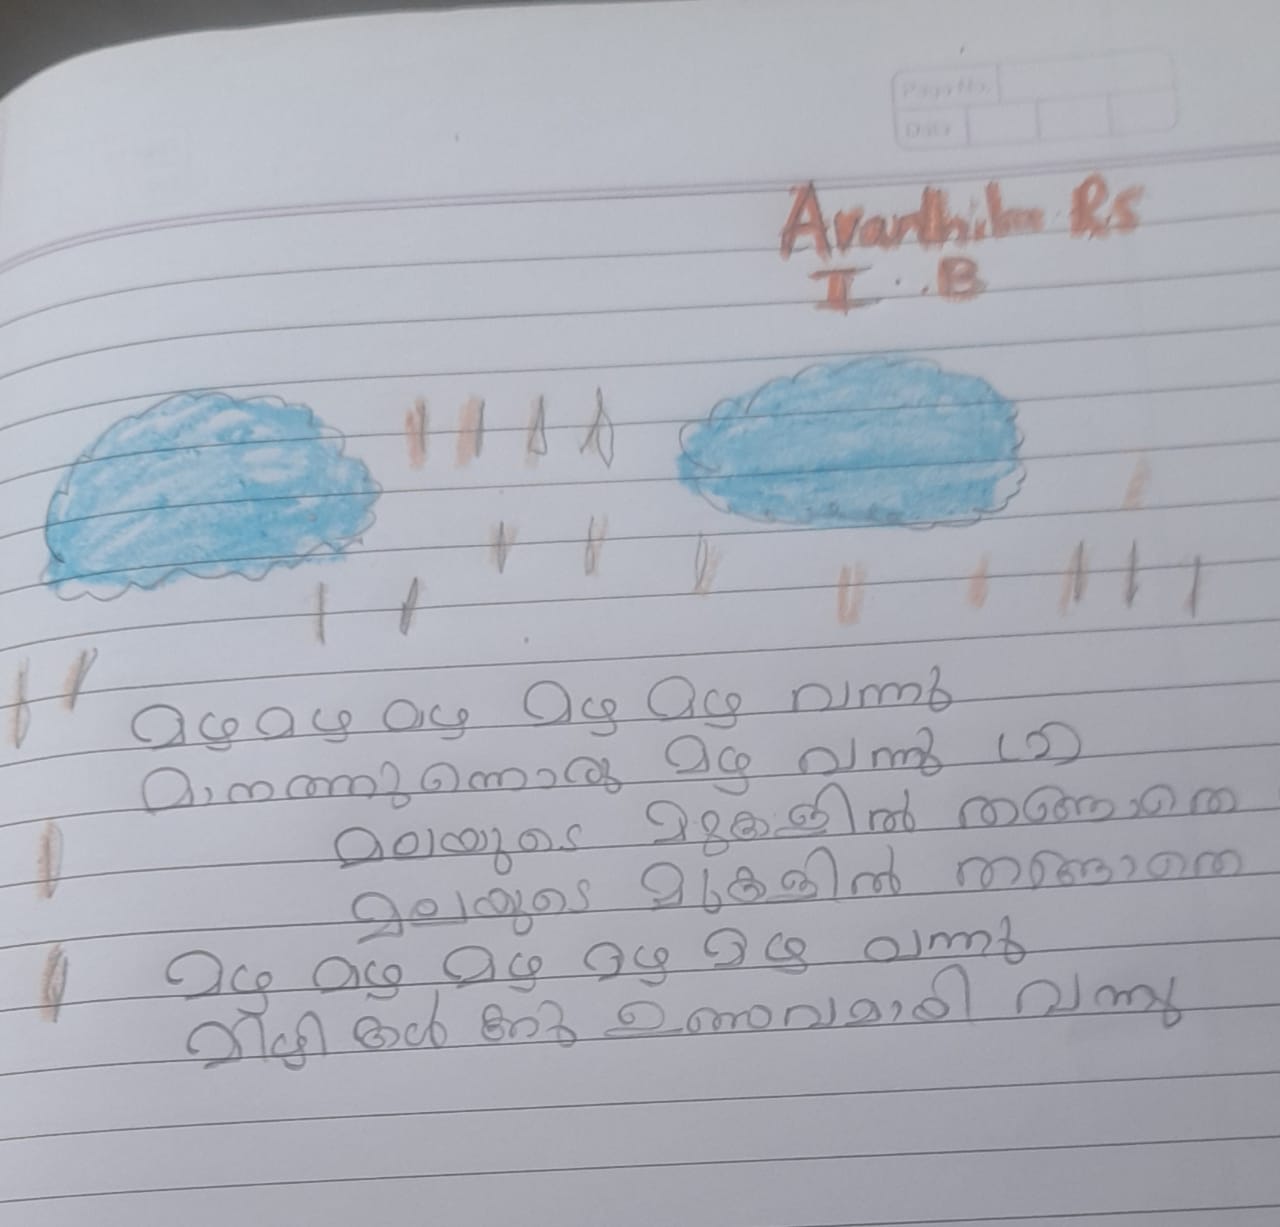 Page No.
Date
Avanthika RS
I . . B
മഴ മഴ മഴ മഴ മഴ വന്നു
മഴ വന്നു (2)
മലയുടെ മുകളിൽ തങ്ങാതെ
മലയുടെ മുകളിൽ തങ്ങാതെ
മഴ മഴ മഴ മഴ മഴ വന്നു
മിഴികൾ ക്കു ഉണവമായി വന്നു